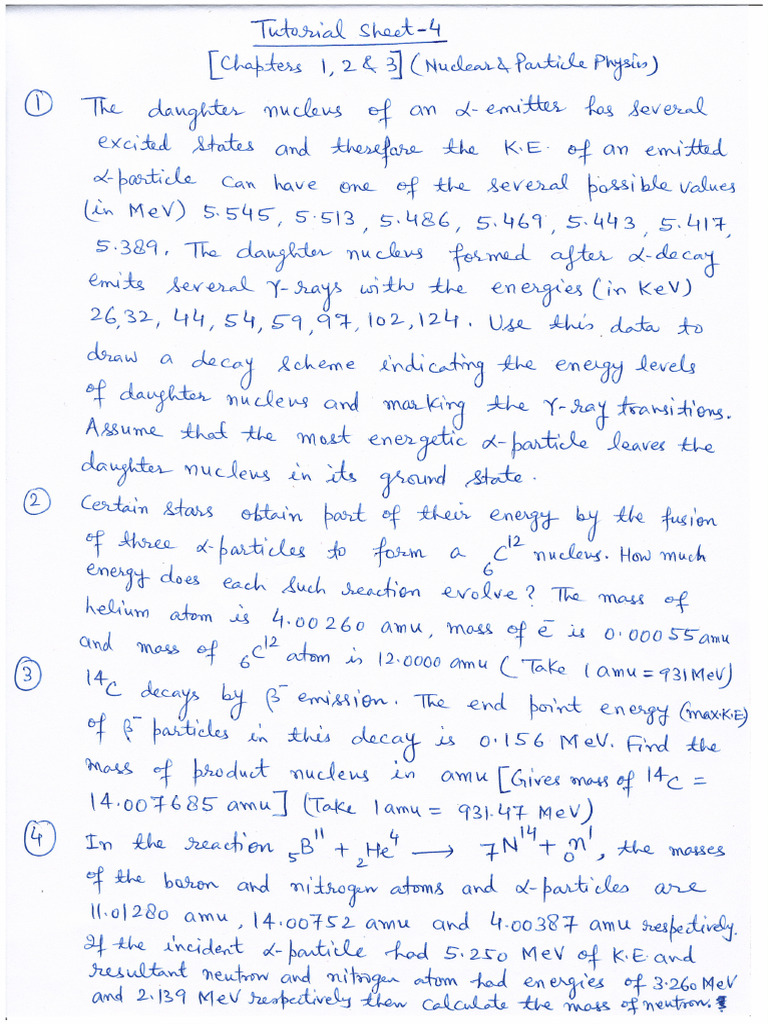 Tutorial Sheet-4
[Chapters 1, 2 & 3] (Nuclear & Particle Physics)
① The daughter nucleus of an α-emitter has several
excited states and therefore the K.E. of an emitted
α-particle can have one of the several possible values
(in MeV) 5.545, 5.513, 5.486, 5.469, 5.443, 5.417,
5.389. The daughter nucleus formed after α-decay
emits several γ-rays with the energies (in KeV)
26,32, 44, 54, 59, 97, 102, 124. Use this data to
draw a decay scheme indicating the energy levels
of daughter nucleus and marking the γ-ray transitions.
Assume that the most energetic α-particle leaves the
daughter nucleus in its ground state.
② Certain stars obtain part of their energy by the fusion
of three α-particles to form a ₆C¹² nucleus. How much
energy does each such reaction evolve? The mass of
helium atom is 4.00260 amu, mass of e⁻ is 0.00055 amu
and mass of ₆C¹² atom is 12.0000 amu (Take 1 amu = 931 MeV)
③ ¹⁴C decays by β⁻ emission. The end point energy (max.K.E)
of β⁻ particles in this decay is 0.156 MeV. Find the
mass of product nucleus in amu [Gives mass of ¹⁴C =
14.007685 amu] (Take 1 amu = 931.47 MeV)
④ In the reaction ₅B¹¹ + ₂He⁴ → 7N¹⁴ + ₀n¹, the masses
of the boron and nitrogen atoms and α-particles are
11.01280 amu, 14.00752 amu and 4.00387 amu respectively.
If the incident α-particle had 5.250 MeV of K.E and
resultant neutron and nitrogen atom had energies of 3.260 MeV
and 2.139 MeV respectively then calculate the mass of neutron.